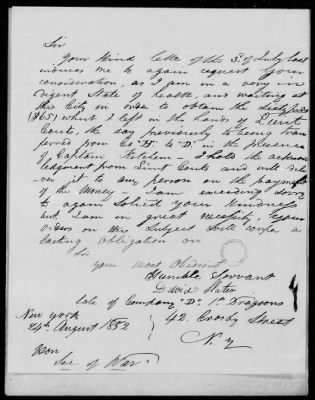 Sir
Your kind letter of the 3d of July last
induces me to again request your
consideration, as I am in a very in
digent State of health, and waiting at
this City in order to obtain the Sixty five
($65) what I left in the hands of Lieut
Couts, the day previously to being tran
ferred from Co "H" to "D" in the presence
of Captain I hold the acknow
ledgment from Lieut Couts and will del
iver it to any person on the payment
of the Money - I am exceeding sorry
to again Solicit your Kindness
but I am in great necessity. Your
orders on this Subject will confer a
lasting Obligation on
Sir
your Most Obedient
Humble Servant
David Slater
late of Company "D" 1st Dragoons
New York
24th August 1852
42 Crosby Street
N. Y
Hon
Sec. of War